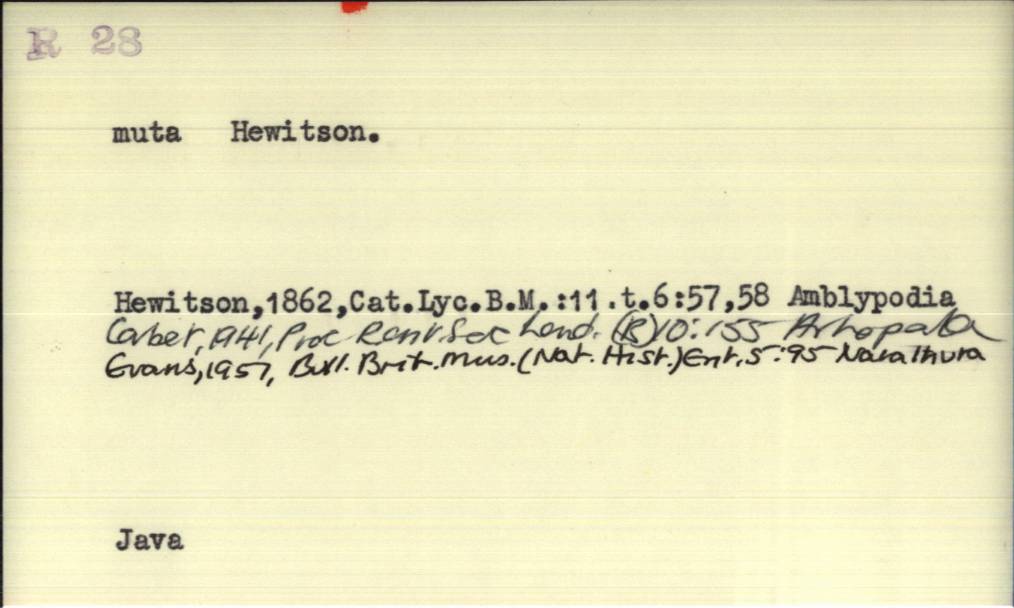 R 28
muta Hewitson.
Hewitson,1862,Cat.Lyc.B.M.:11.t.6:57,58 Amblypodia
Corbet, 1941, Proc R ent. Soc Lond. (B) 10: 155 Arhopala
Evans, 1957, Bull. Brit. Mus. (Nat. Hist.) Ent. 5: 95 Narathura
Java